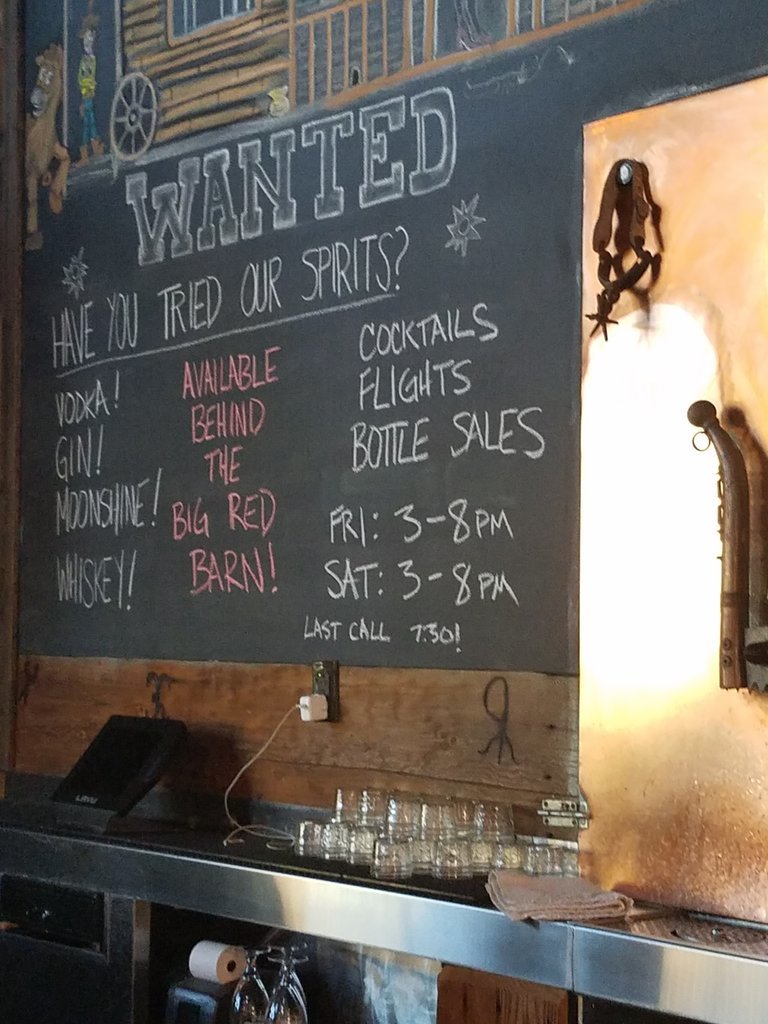 WANTED
HAVE YOU TRIED OUR SPIRITS?
VODKA!
GIN!
MOONSHINE!
WHISKEY!
AVAILABLE
BEHIND
THE
BIG RED
BARN!
COCKTAILS
FLIGHTS
BOTTLE SALES
FRI: 3-8PM
SAT: 3-8PM
LAST CALL 7:30!